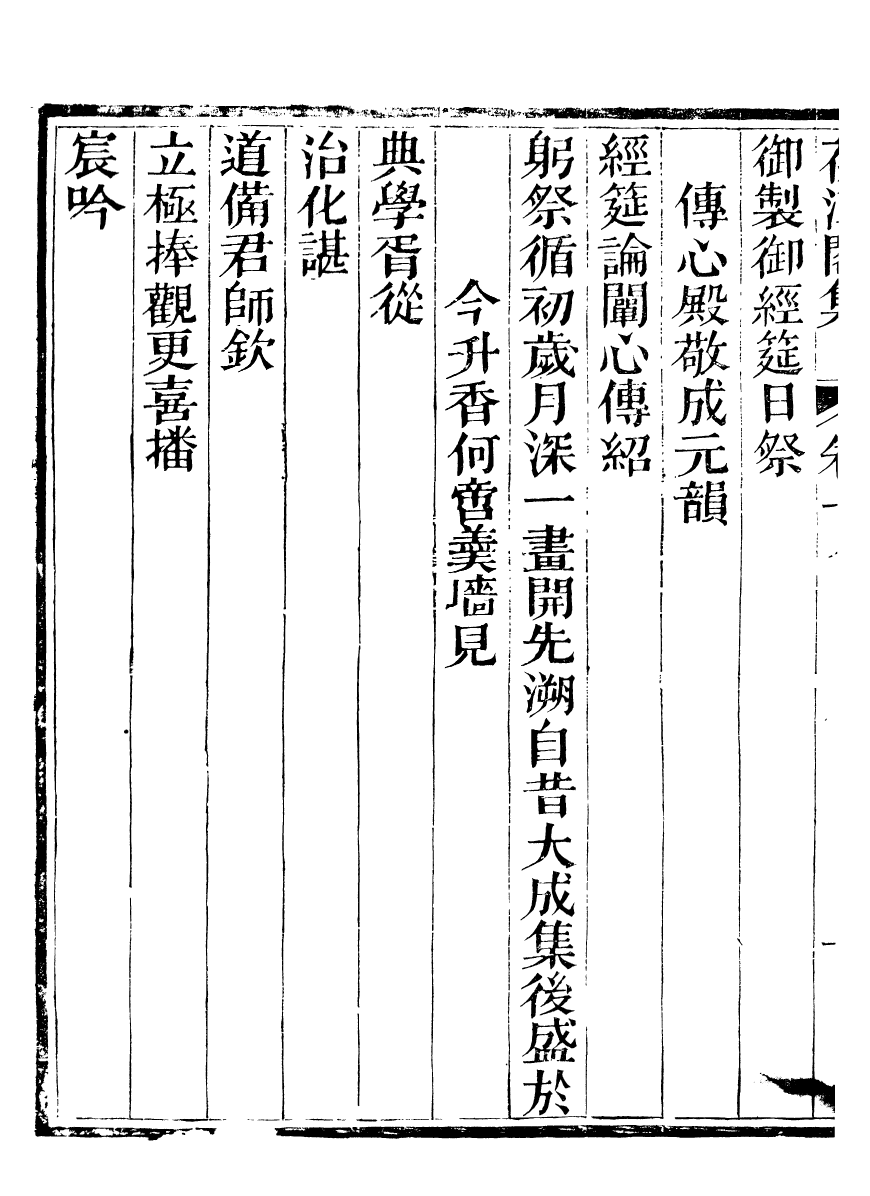 御製御經筵日祭
傳心殿敬成元韻
經筵論闡心傳紹
躬祭循初歲月深一畫開先溯自昔大成集後盛於
今升香何啻羹墻見
典學胥從
治化諶
道備君師欽
立極捧觀更喜播
宸吟